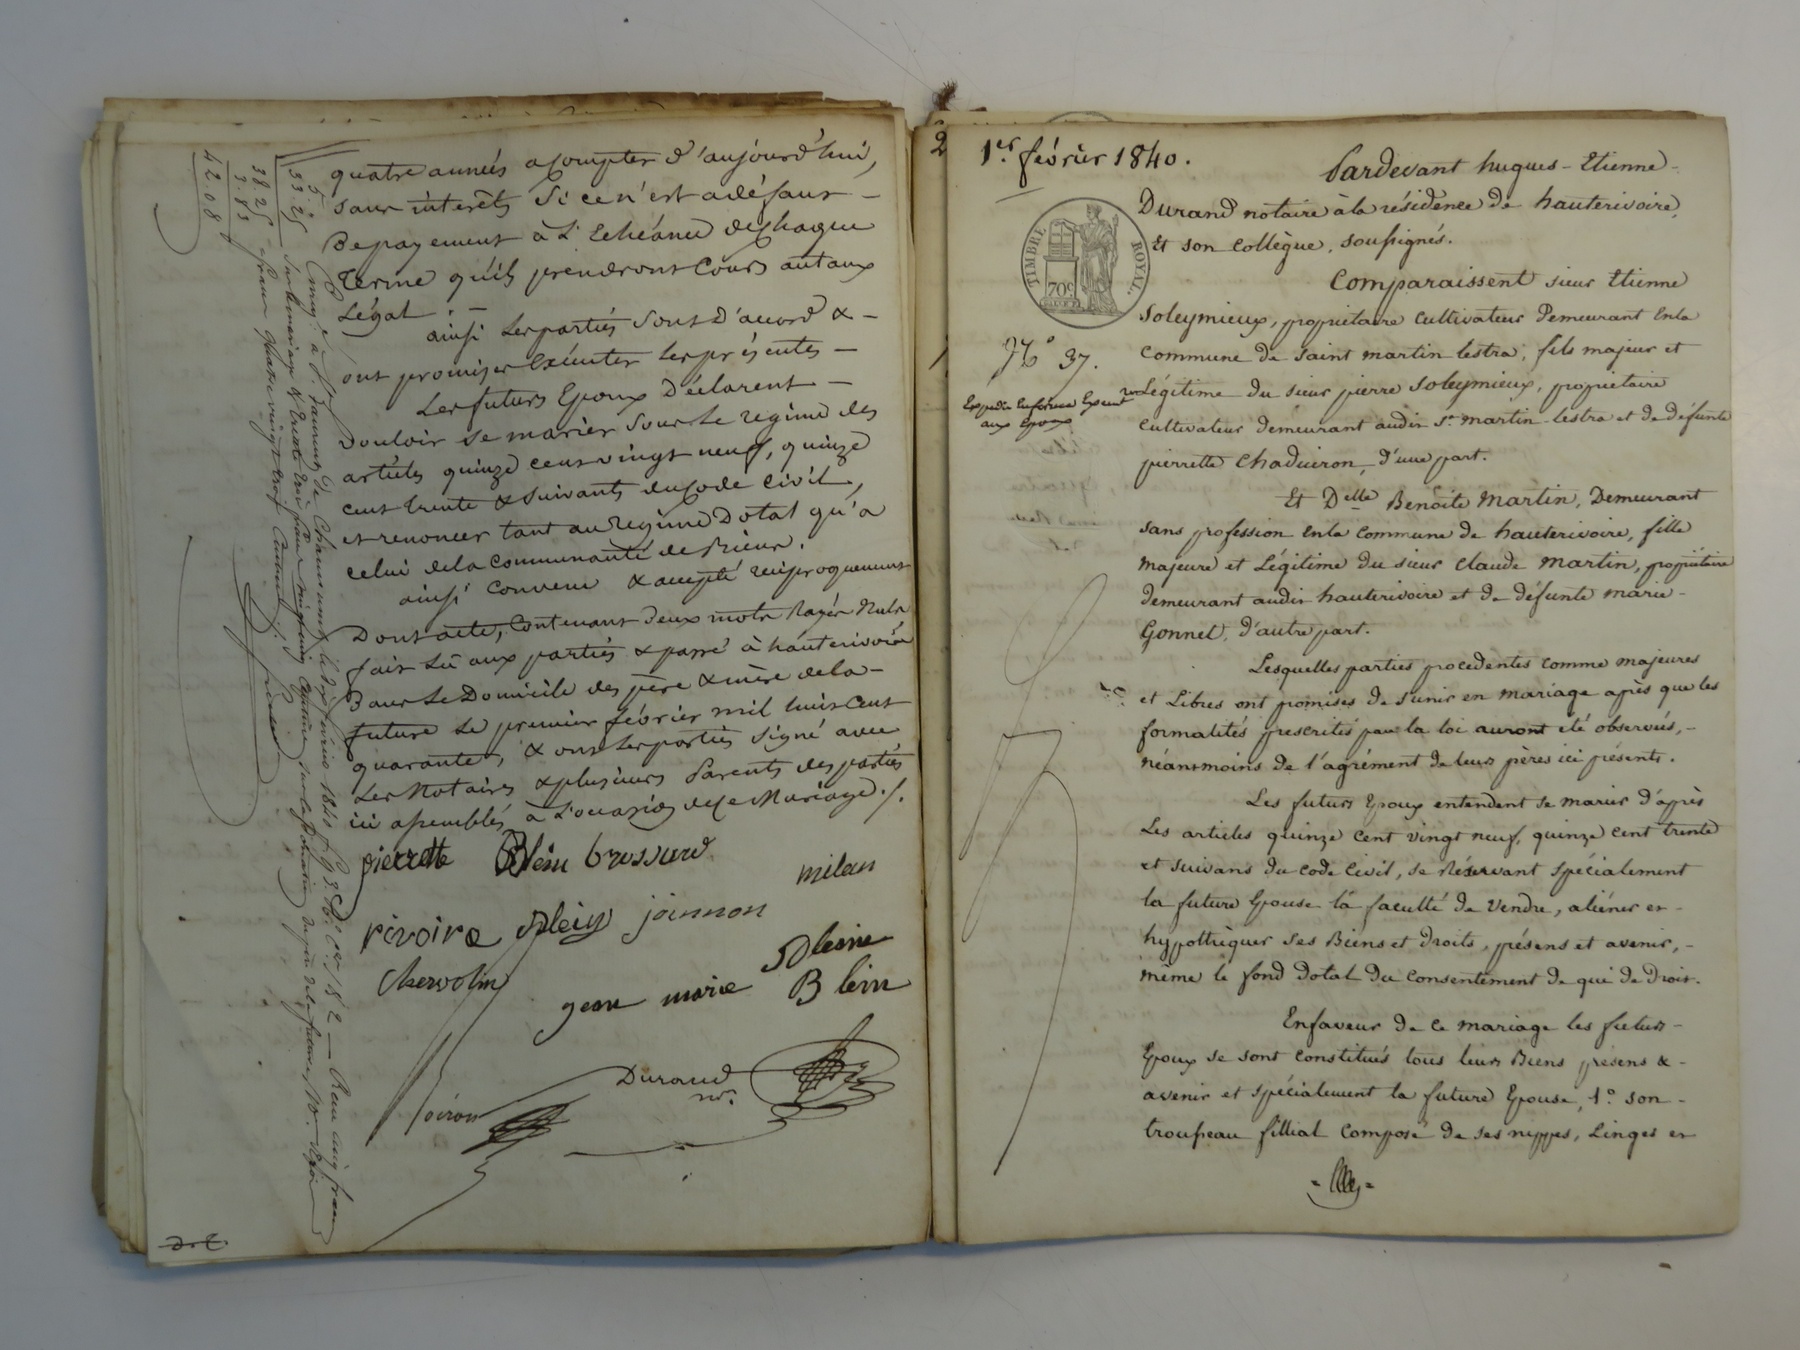 quatre années acompter d'aujourd'hui,
sans intérêts Si ce n'est adéfaut –
De payement à L'échéance dechaque
Terme qu'ils prendront Cours autaux
Légal. –
ainsi Lesparties Sont D'accord & –
ont promis Exécuter Lesprésentes –
Lesfuturs Epoux Déclarent –
Vouloir se marier Sous Le regime des
articles quinze cent vingt neuf, quinze
cent trente & Suivants ducode Civil,
et renoncer tant au Regime Dotal qu'a
celui dela Communauté de Biens.
ainsi Convenu & accepté réciproquement
Dont acte, Contenant deux mots Rayés Nuls
fait Lu aux parties & passé à hauterivoire
Dans Le Domicile des père & mère dela –
future Le premier février mil huit Cent
quarante, & ont Lesparties Signé avec
Les Notaires & plusieurs Parents des parties
ici assemblés à L'occasion de ce Mariage ./.
pierrette Blein brossard
milan
rivoire Blein joinnon
Blein
jean marie Blein
Durand
nre.
5
33.25
38.25
3.83
42.08
1er février 1840.
2
Pardevant hugues-Etienne-
Durand notaire à la résidence de hauterivoire,
Et son Collègue, soussignés.
TIMBRE ROYAL
70c
Comparaissent sieur Etienne
Soleymieux, propriétaire cultivateur Demeurant Enla
No 37.
Commune de saint martin lestra, fils majeur et
Légitime du sieur pierre Soleymieux, propriétaire
aux Epoux
cultivateur demeurant audit St martin-lestra et de défunte
pierrette Chaduiron, d'une part.
Et Delle Benoite Martin, Demeurant
sans profession Enla Commune de hauterivoire, fille
majeure et Légitime du sieur Claude Martin, propriétaire
demeurant audit hauterivoire et de défunte marie-
Gonnet, d'autre part.
Lesquelles parties procedentes comme majeures
et Libres ont promises de s'unir en mariage après que les
formalités prescrites par la loi auront été observées, –
néantmoins de l'agrément de leurs pères ici présents.
Les futurs Epoux entendent se marier d'après
Les articles quinze cent vingt neuf, quinze cent trente
et suivans du code Civil, se réservant spécialement
la future Epouse la faculté de vendre, aliéner et –
hypothèquer ses Biens et Droits, présens et avenir, –
même le fond dotal du consentement de qui de Droit.
Enfaveur de ce mariage les futurs –
Epoux se sont constitués tous leurs Biens présens & –
avenir et spécialement la future Epouse, 1o son –
trousseau fillial composé de ses nippes, Linges et